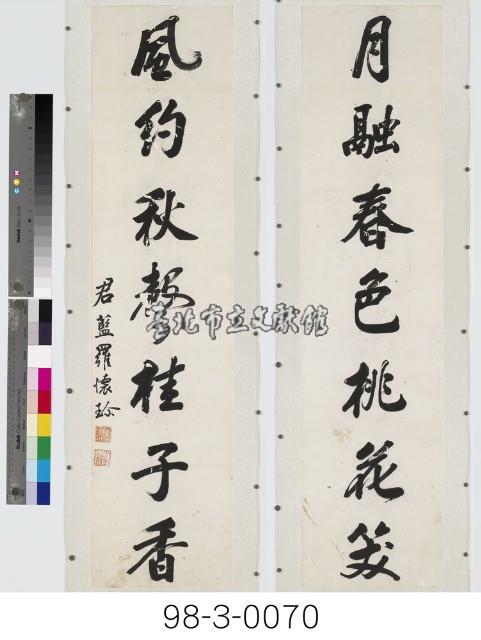 月融春色桃花笑
風約秋聲桂子香
君藍羅懷珍
臺北市立文獻館
98-3-0070